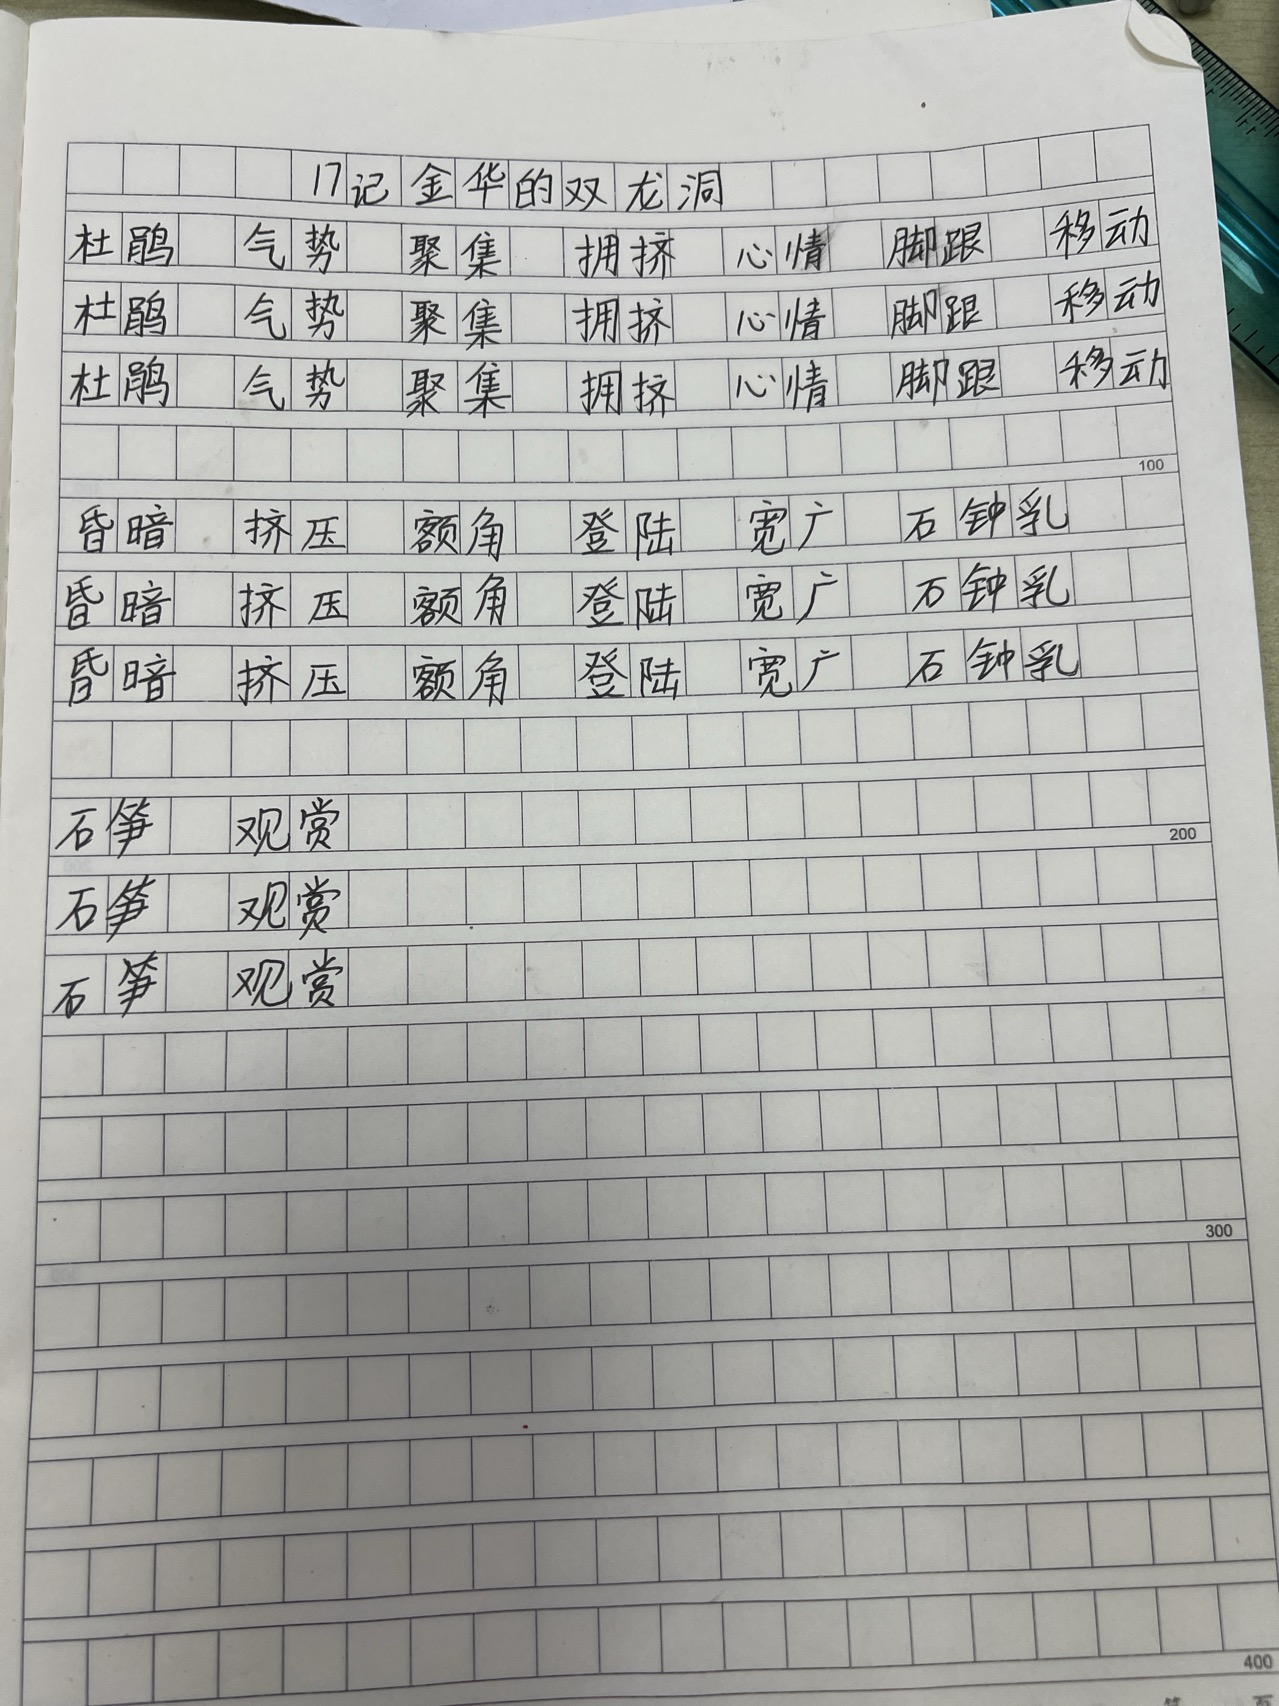 17记金华的双龙洞
杜鹃 气势 聚集 拥挤 心情 脚跟 移动
杜鹃 气势 聚集 拥挤 心情 脚跟 移动
杜鹃 气势 聚集 拥挤 心情 脚跟 移动
100
昏暗 挤压 额角 登陆 宽广 石钟乳
昏暗 挤压 额角 登陆 宽广 石钟乳
昏暗 挤压 额角 登陆 宽广 石钟乳
石笋 观赏
200
石笋 观赏
石笋 观赏
300
400